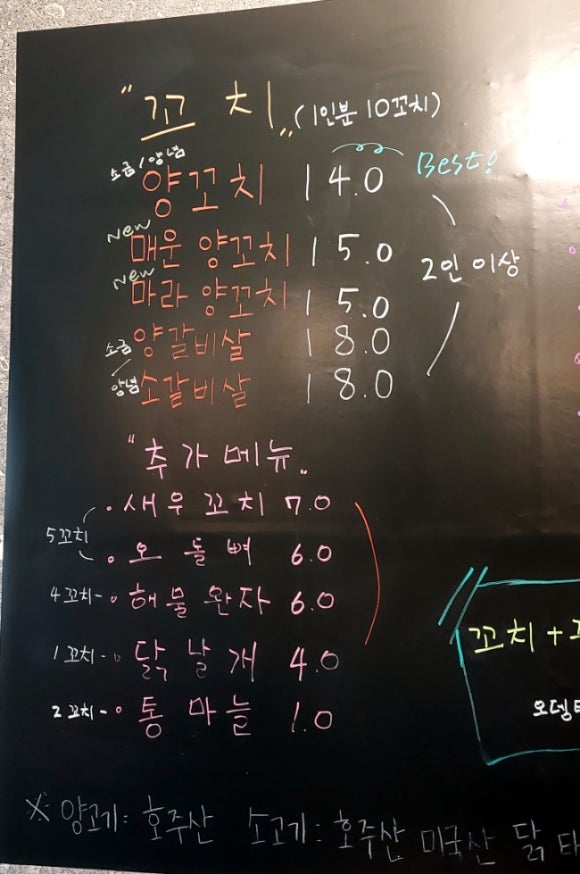 "꼬 치" (1인분 10꼬치)
소금/양념
양꼬치 14.0 Best!
New
매운 양꼬치 15.0
2인 이상
New
마라 양꼬치 15.0
소금/양념
양갈비살 18.0
소갈비살 18.0
"추가메뉴"
5꼬치
· 새우꼬치 7.0
· 오돌뼈 6.0
4꼬치- · 해물완자 6.0
1꼬치- · 닭날개 4.0
2꼬치- · 통마늘 1.0
꼬치+
오뎅
※ 양고기: 호주산 소고기: 호주산 미국산 닭